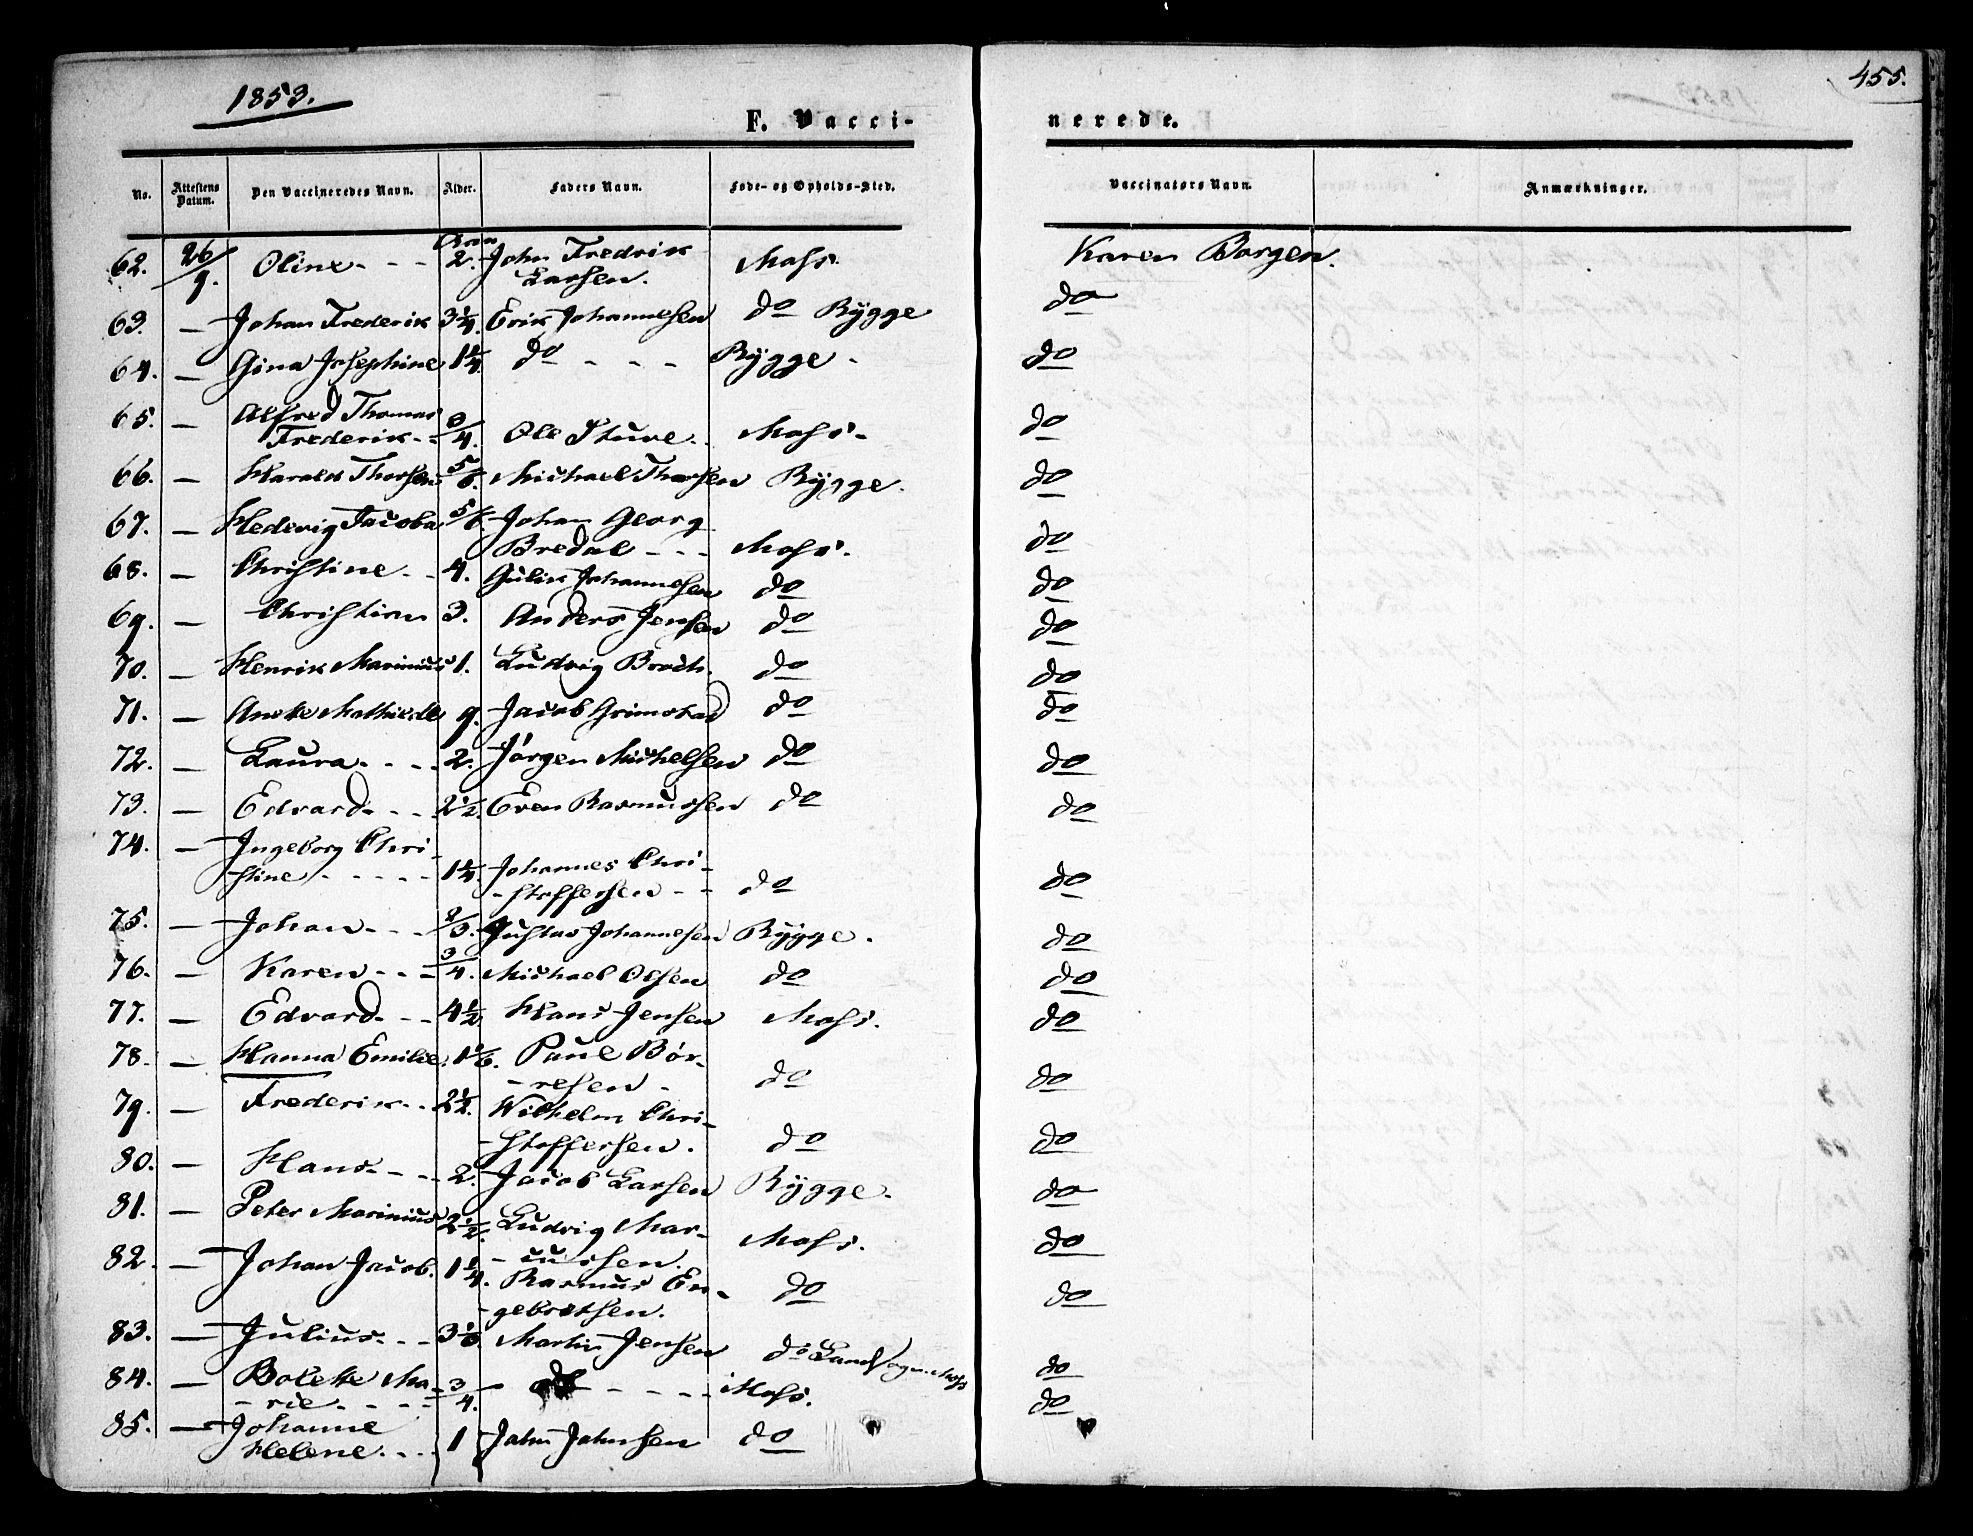 1853.
455.
F. Vacci-
nerede.
No.
Attestens Datum.
Den Vaccineredes Navn.
Alder.
Faders Navn.
Føde- og Opholds-Sted.
Vaccinators Navn.
Anmærkninger.
62. 26/9. Oline - - - 2. John Fredrik Larsen. Moss. Karen Borgen.
63. — Johan Frederik 3 1/4. Erik Johannesen do Rygge do
64. — Gina Josephine 1 1/4. do - - - Rygge - do
65. — Alfred Thomas Frederik - - 3/4. Ole Sture. Moss. do
66. — Harald Thorsen 5/6. Michael Thorsen Rygge. do
67. — Hedevig Jacoba 5/6. Johan Georg Bredal - - - Moss. do
68. — Christine - - 4. Gulik Johannesen do do
69. — Christian 3. Anders Jensen do do
70. — Henrik Marinius 1. Ludvig Broch. do do
71. — Anette Mathilde 9. Jacob Grimstad do do
72. — Laura - - - 2. Jørgen Michelsen do do
73. — Edvard - - - 2 1/2. Even Rasmussen do do
74. — Ingeborg Chri-
stine - - - - - 1 1/4. Johannes Chri-
-stoffersen - - do do
75. — Johan - - - 2/3. Gustav Johannesen Rygge. do
76. — Karen - - - 3/4. Michael Olsen do do
77. — Edvard - - - 4 1/2 Hans Jensen Moss. do
78. — Hanna Emilie. 1 1/6. Paul Bør-
-resen - do do
79. — Frederik - - 2 1/2. Wilhelm Chri-
-stoffersen. do do
80. — Hans - - - 2. Jacob Larsen Rygge. do
81. — Peter Marinius 2 1/2. Ludvig Mar-
-cussen. Moss. do
82. — Johan Jacob. 1 1/4. Rasmus En-
-gebretsen. do do
83. — Julius - - - 3 1/3. Martin Jensen do Landsogn Moss do
84. — Bolette Ma-
-rie - - - - 3/4. do - - - - Moss. do
85. — Johanne Helene - - - 1 John Johnsen do